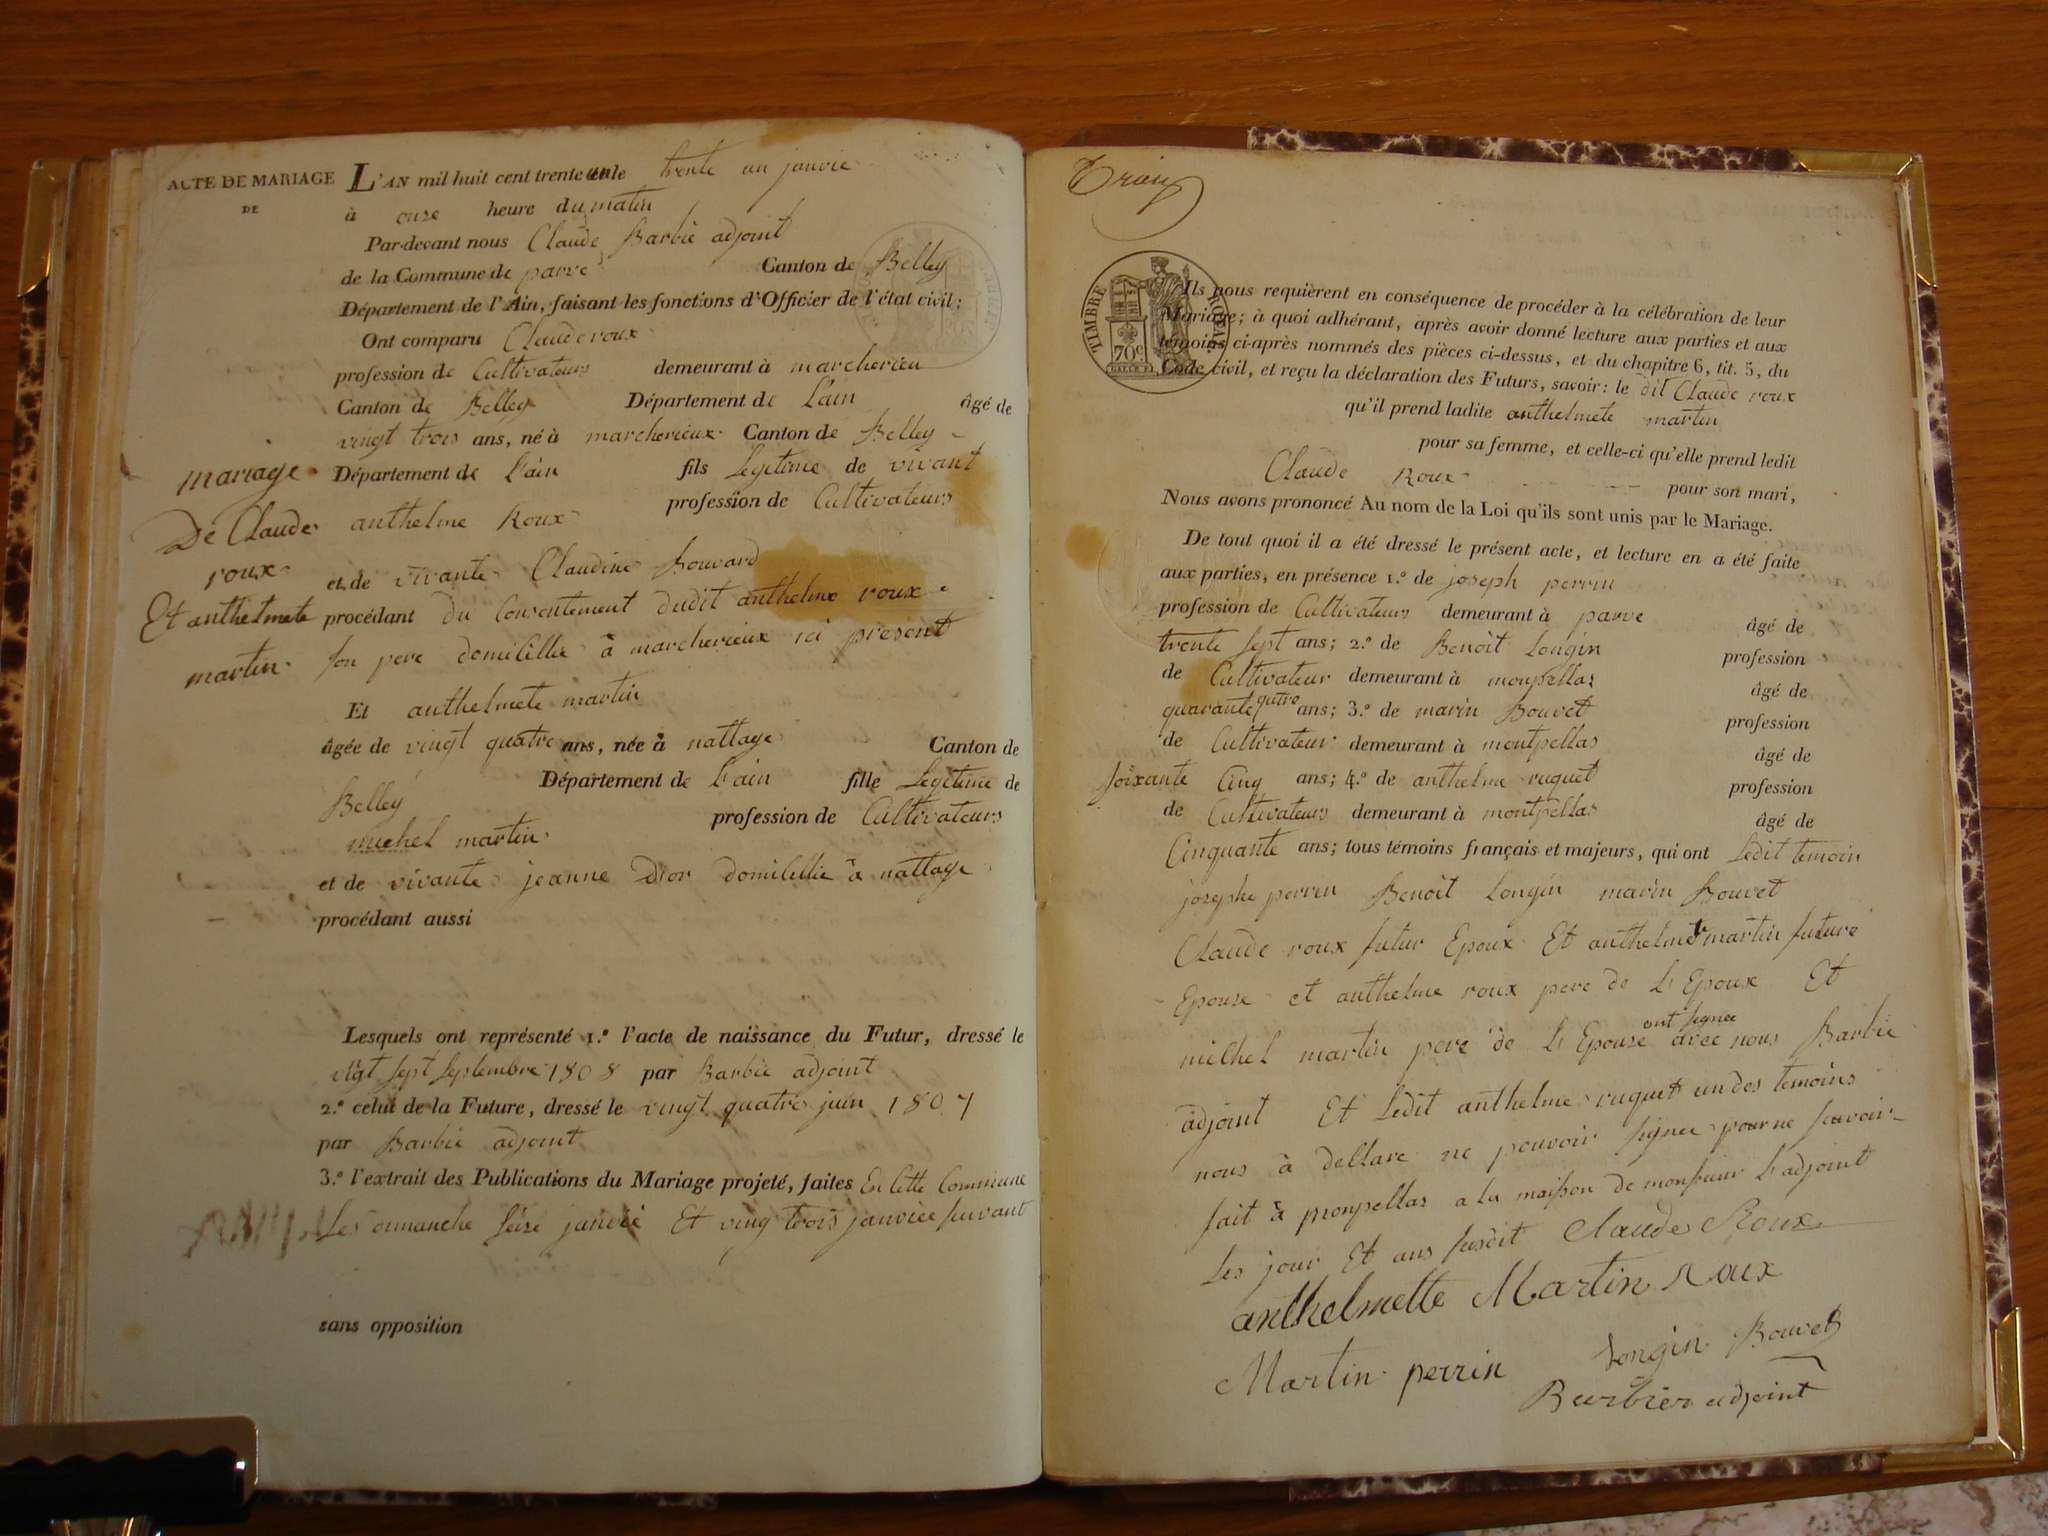 ACTE DE MARIAGE
DE
mariage
De Claude
roux
Et anthelmete
martin
L'AN mil huit cent trente un le trente un janvie
à onze heure du matin
Par-devant nous Claude Barbié adjoint
de la Commune de parve Canton de Belley
Département de l'Ain, faisant les fonctions d'Officier de l'état civil:
Ont comparu Claude roux
profession de Cultivateurs demeurant à marcherieu
Canton de Belley Département de l'ain âgé de
vingt trois ans, né à marcherieux Canton de Belley
Département de l'ain fils legitime de vivant
anthelme Roux profession de Cultivateurs
et de vivante Claudine Bouvard
procédant du Consentement dudit anthelme roux
son pere domicillié à marcherieux ici present
Et anthelmete martin
âgée de vingt quatre ans, née à nattage Canton de
Belley Département de l'ain fille Legitime de
michel martin profession de Cultivateurs
et de vivante jeanne Dior domicillié à nattage
procédant aussi
Lesquels ont représenté 1.º l'acte de naissance du Futur, dressé le
vigt sept septembre 1808 par Barbié adjoint
2.º celui de la Future, dressé le vingt quatre juin 1807
par Barbié adjoint
3.º l'extrait des Publications du Mariage projeté, faites En cette Commune
Les dimanche seize janvié Et ving trois janvier suivant
sans opposition
TIMBRE ROYAL
70c.
Ils nous requièrent en conséquence de procéder à la célébration de leur
Mariage; à quoi adhérant, après avoir donné lecture aux parties et aux
témoins ci-après nommés des pièces ci-dessus, et du chapitre 6, tit. 5, du
Code civil, et reçu la déclaration des Futurs, savoir: le dit Claude roux
qu'il prend ladite anthelmete martin
pour sa femme, et celle-ci qu'elle prend ledit
Claude Roux pour son mari,
Nous avons prononcé Au nom de la Loi qu'ils sont unis par le Mariage.
De tout quoi il a été dressé le présent acte, et lecture en a été faite
aux parties, en présence 1.º de joseph perrin
profession de Cultivateurs demeurant à parve âgé de
trente sept ans; 2.º de Benoit Longin profession
de Cultivateur demeurant à monpellas âgé de
quarante qutre ans; 3.º de marin Bouvet profession
de Cultivateur demeurant à montpellas âgé de
soixante Cinq ans; 4.º de anthelme ruguet profession
de Cultivateurs demeurant à montpellas âgé de
Cinquante ans; tous témoins français et majeurs, qui ont Ledit temoin
josephe perrin Benoit Longin marin Bouvet
Claude roux futur Epoux Et anthelmete martin future
Epouse et anthelme roux pere de L'Epoux Et
michel martin pere de L'Epouse ont signee avec nous Barbié
adjoint Et Ledit anthelme ruguet un des temoins
nous à declare ne pouvoir signer pour ne savoir
fait à monpellas a la maison de monsieur L'adjoint
Les jour Et ans susdit Claude Roux
anthelmette Martin Roux
Martin perrin Longin Bouvet
Barbier adjoint